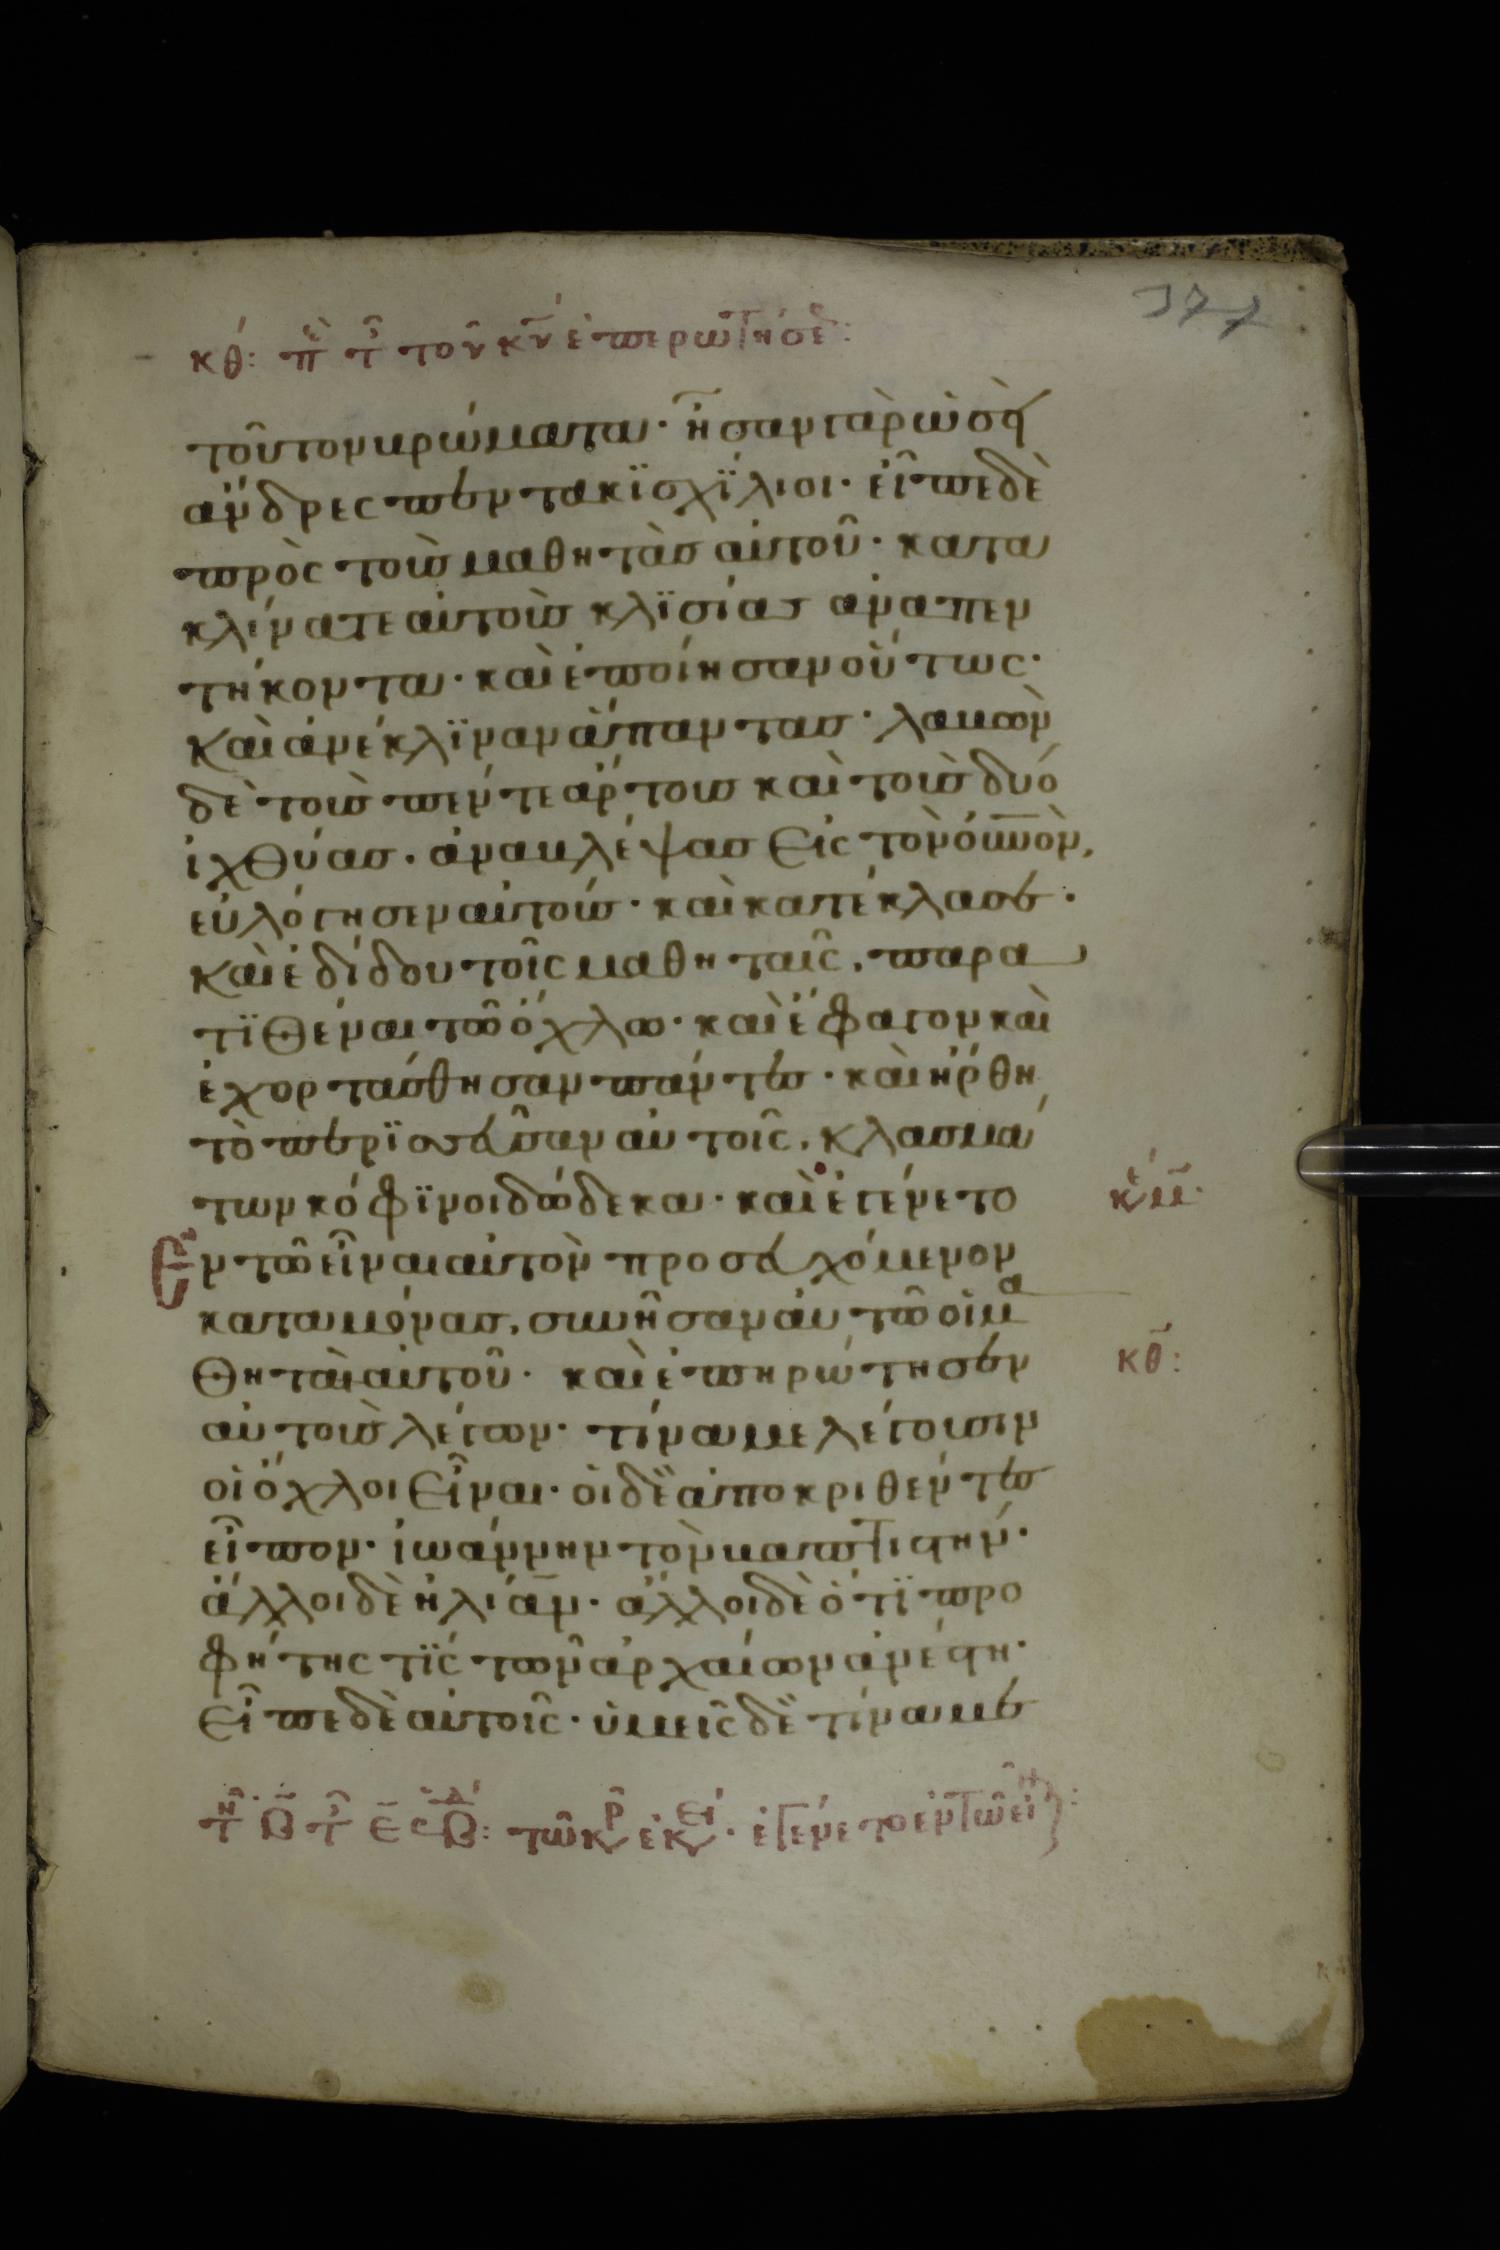 377
κθ: π τ τοῦ κῦ ἐπερωτήσε:
τοῦτον βρώματα· ἦσαν γὰρ ὡσεὶ
ἄνδρες πεντακϊσχΐλιοι· εἶπε δὲ
πρὸς τοὺς μαθητὰς αὐτοῦ· κατα
κλίνατε αὐτοὺς κλϊσίας ἀνα πεν
τήκοντα· καὶ ἐποίησαν οὕτως·
Καὶ ἀνέκλϊναν ἅπαντας· λαβὼν
δὲ τοὺς πέντε ἄρτους καὶ τοὺς δυό
ἰχθύας· ἀναβλέψας εἰς τὸν οὐνὸν,
εὐλόγησεν αὐτούς· καὶ κατέκλασε·
Καὶ ἐδίδου τοῖς μαθηταῖς, παρα
τϊθέναι τῶ ὄχλω· καὶ ἔφαγον καὶ
ἐχορτάσθησαν πάντες· καὶ ἤρθη
τὸ περϊσσεῦσαν αὐτοῖς, κλασμά
των κόφϊνοι δώδεκα· καὶ ἐγένετο
Ἐν τῶ εἶναι αὐτὸν προσευχόμενον
καταμόνας, συνῆσαν αὐτῶ οἱ μα
θηταὶ αὐτοῦ· καὶ ἐπηρώτησεν
κθ:
αὐτοὺς λέγων· τίνα με λέγουσιν
οἱ ὄχλοι εἶναι· οἱ δὲ ἀποκριθέντες
εἶπον· ἰωάννην τὸν βαπτιστήν·
ἄλλοι δὲ ἠλίαν· ἄλλοι δὲ ὅτϊ προ
φήτης τϊς τῶν ἀρχαίων ἀνέστη·
Εἶπε δὲ αὐτοῖς· ὑμεῖς δὲ τίνα με
τῶ κρ ἐκει· ἐγένετο ἐν τῶ εἶν